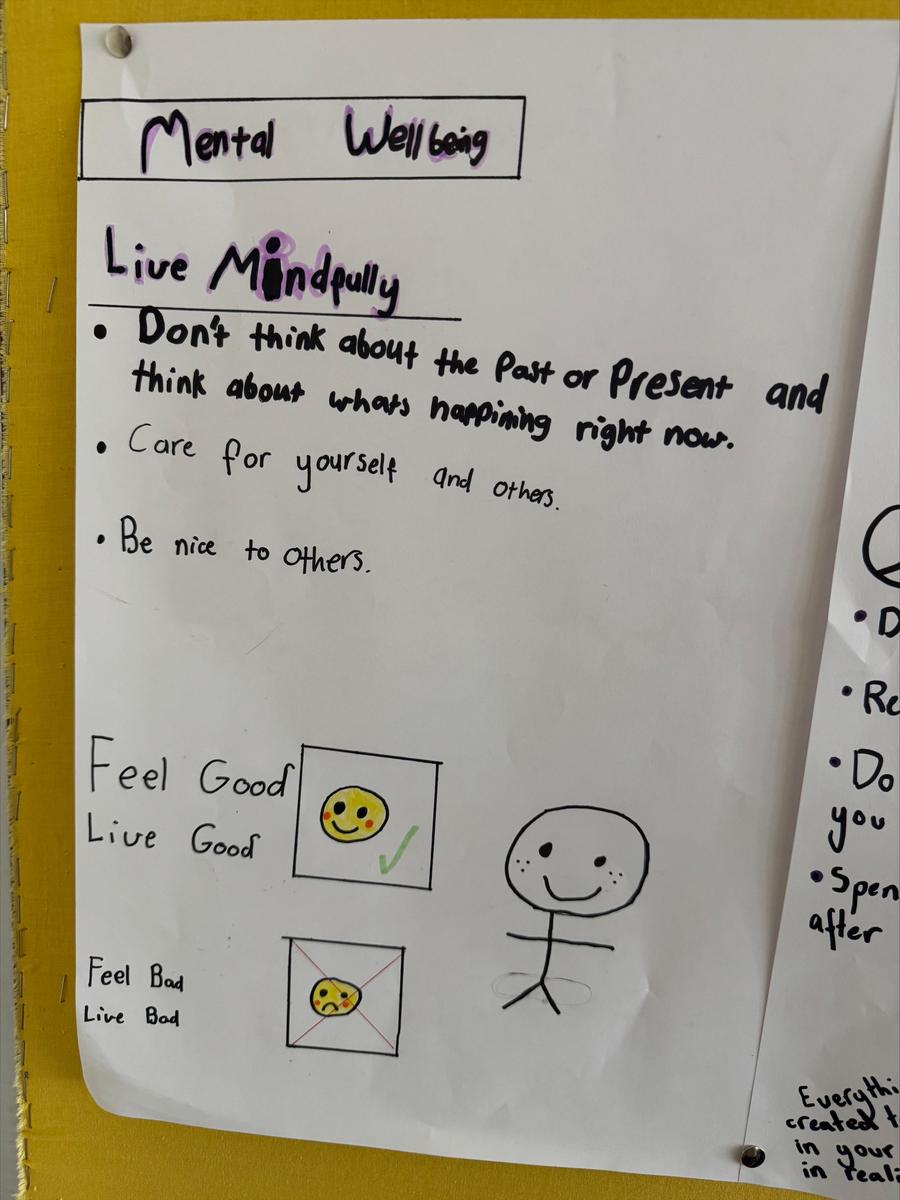 Mental Wellbeing
Live Mindfully
• Don't think about the Past or Present and
think about whats happining right now.
• Care for yourself and others.
• Be nice to others.
Feel Good
Live Good
Feel Bad
Live Bad
• Do
you
• 
after
in your